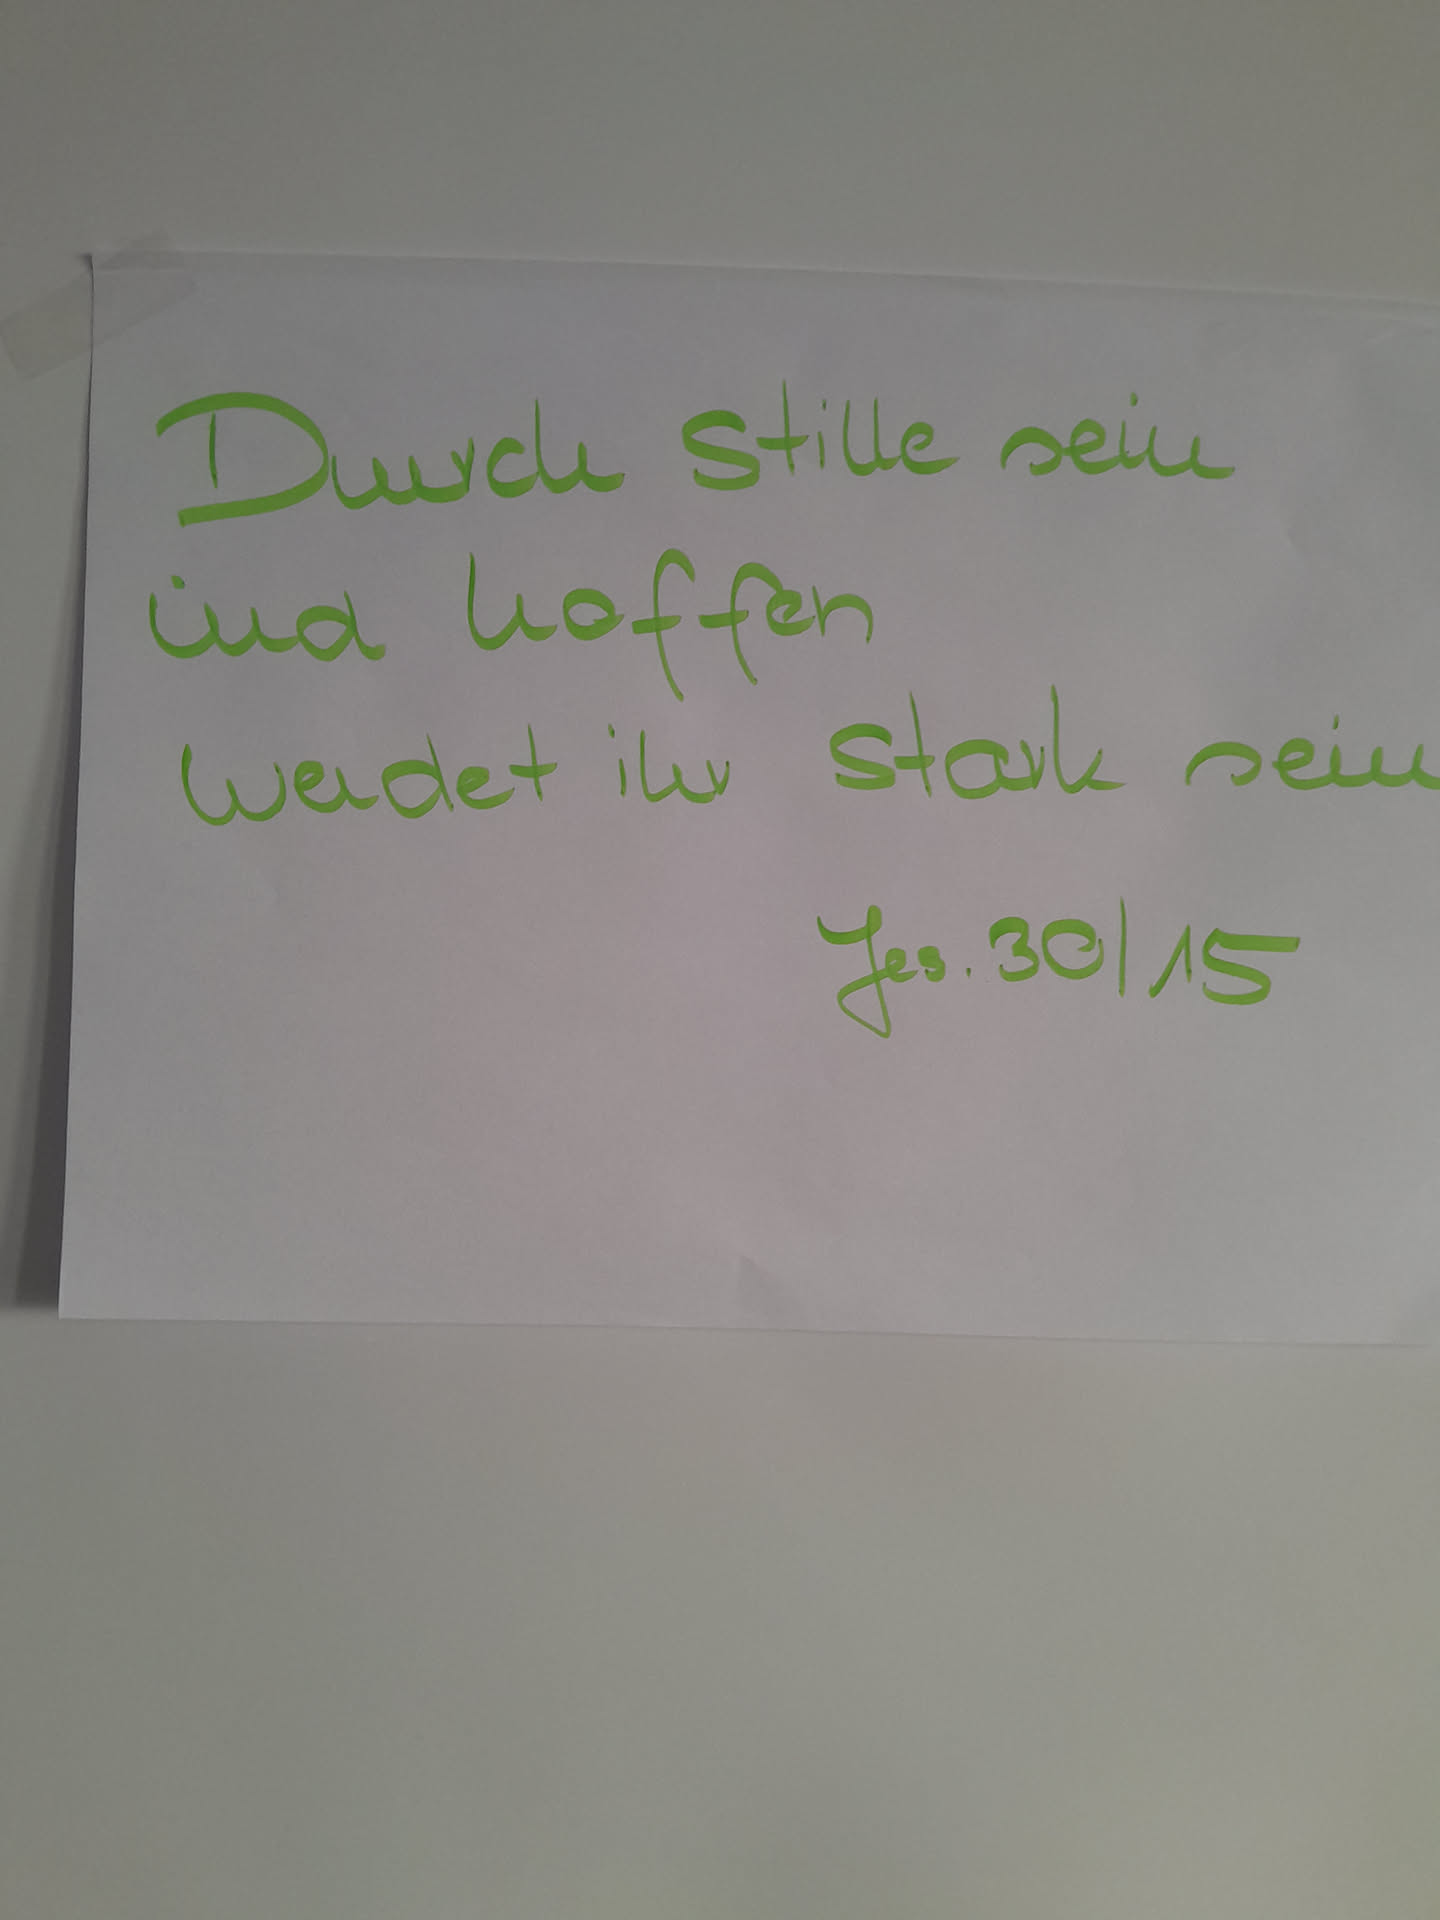 Durch stille sein
und hoffen
werdet ihr stark sein
Jes. 30/15